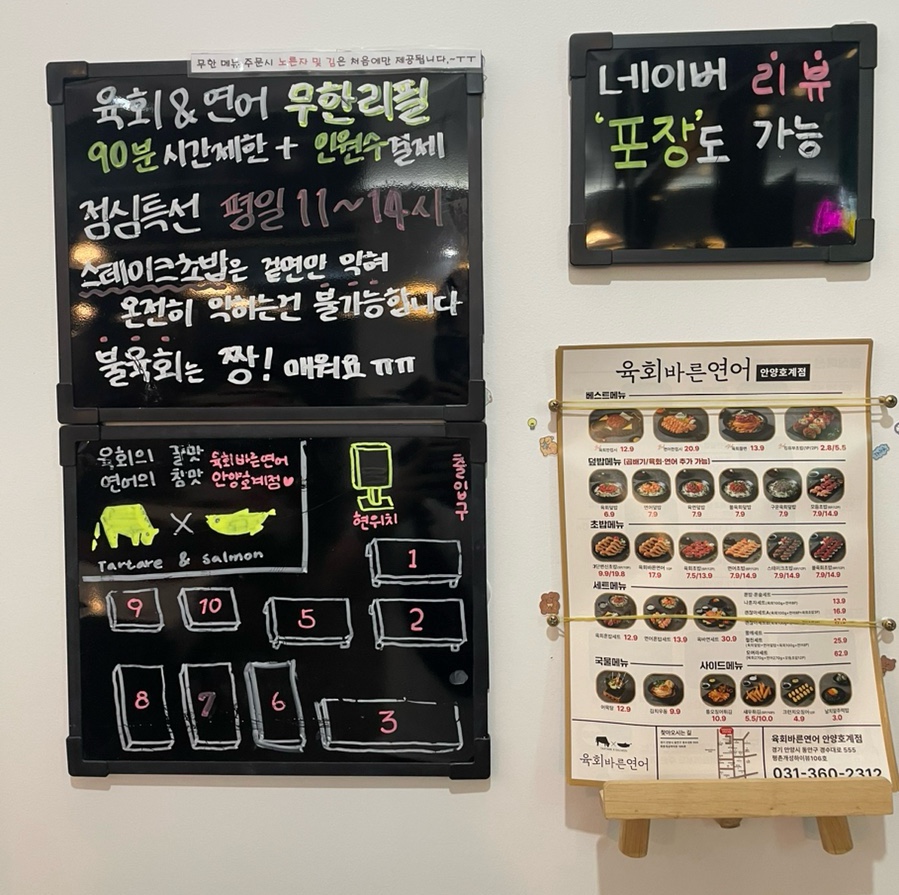 무한 메뉴 주문시 노른자 및 김은 처음에만 제공됩니다.ㅜㅜ
육회&연어 무한리필
90분 시간제한 + 인원수결제
점심특선 평일 11~14시
스테이크초밥은 겉면만 익혀
온전히 익히는건 불가능합니다
불육회는 짱! 매워요 ㅠㅠ
육회의 꿀맛 육회바른연어
연어의 참맛 안양호계점
Tartare & salmon
현위치
출입구
1
9
10
5
2
8
7
6
3
네이버 리뷰
'포장'도 가능
육회바른연어 안양호계점
베스트메뉴
12.9
20.9
13.9
2.8/5.5
덮밥메뉴 (곱빼기/육회·연어 추가 가능)
육회덮밥 연어덮밥
6.9 7.9 7.9 7.9 7.9 7.9/14.9
초밥메뉴
9.9/19.8 17.9 7.5/13.9 7.9/14.9 7.9/14.9 7.9/14.9
세트메뉴
육회혼밥세트 12.9
연어혼밥세트 13.9
육바연세트 30.9
13.9
16.9
25.9
62.9
국물메뉴
어묵탕 12.9
김치우동 9.9
사이드메뉴
10.9
5.5/10.0
4.9
3.0
육회바른연어
찾아오시는 길
육회바른연어 안양호계점
경기 안양시 동안구 경수대로 555
평촌개성하이뷰106호
031-360-2312